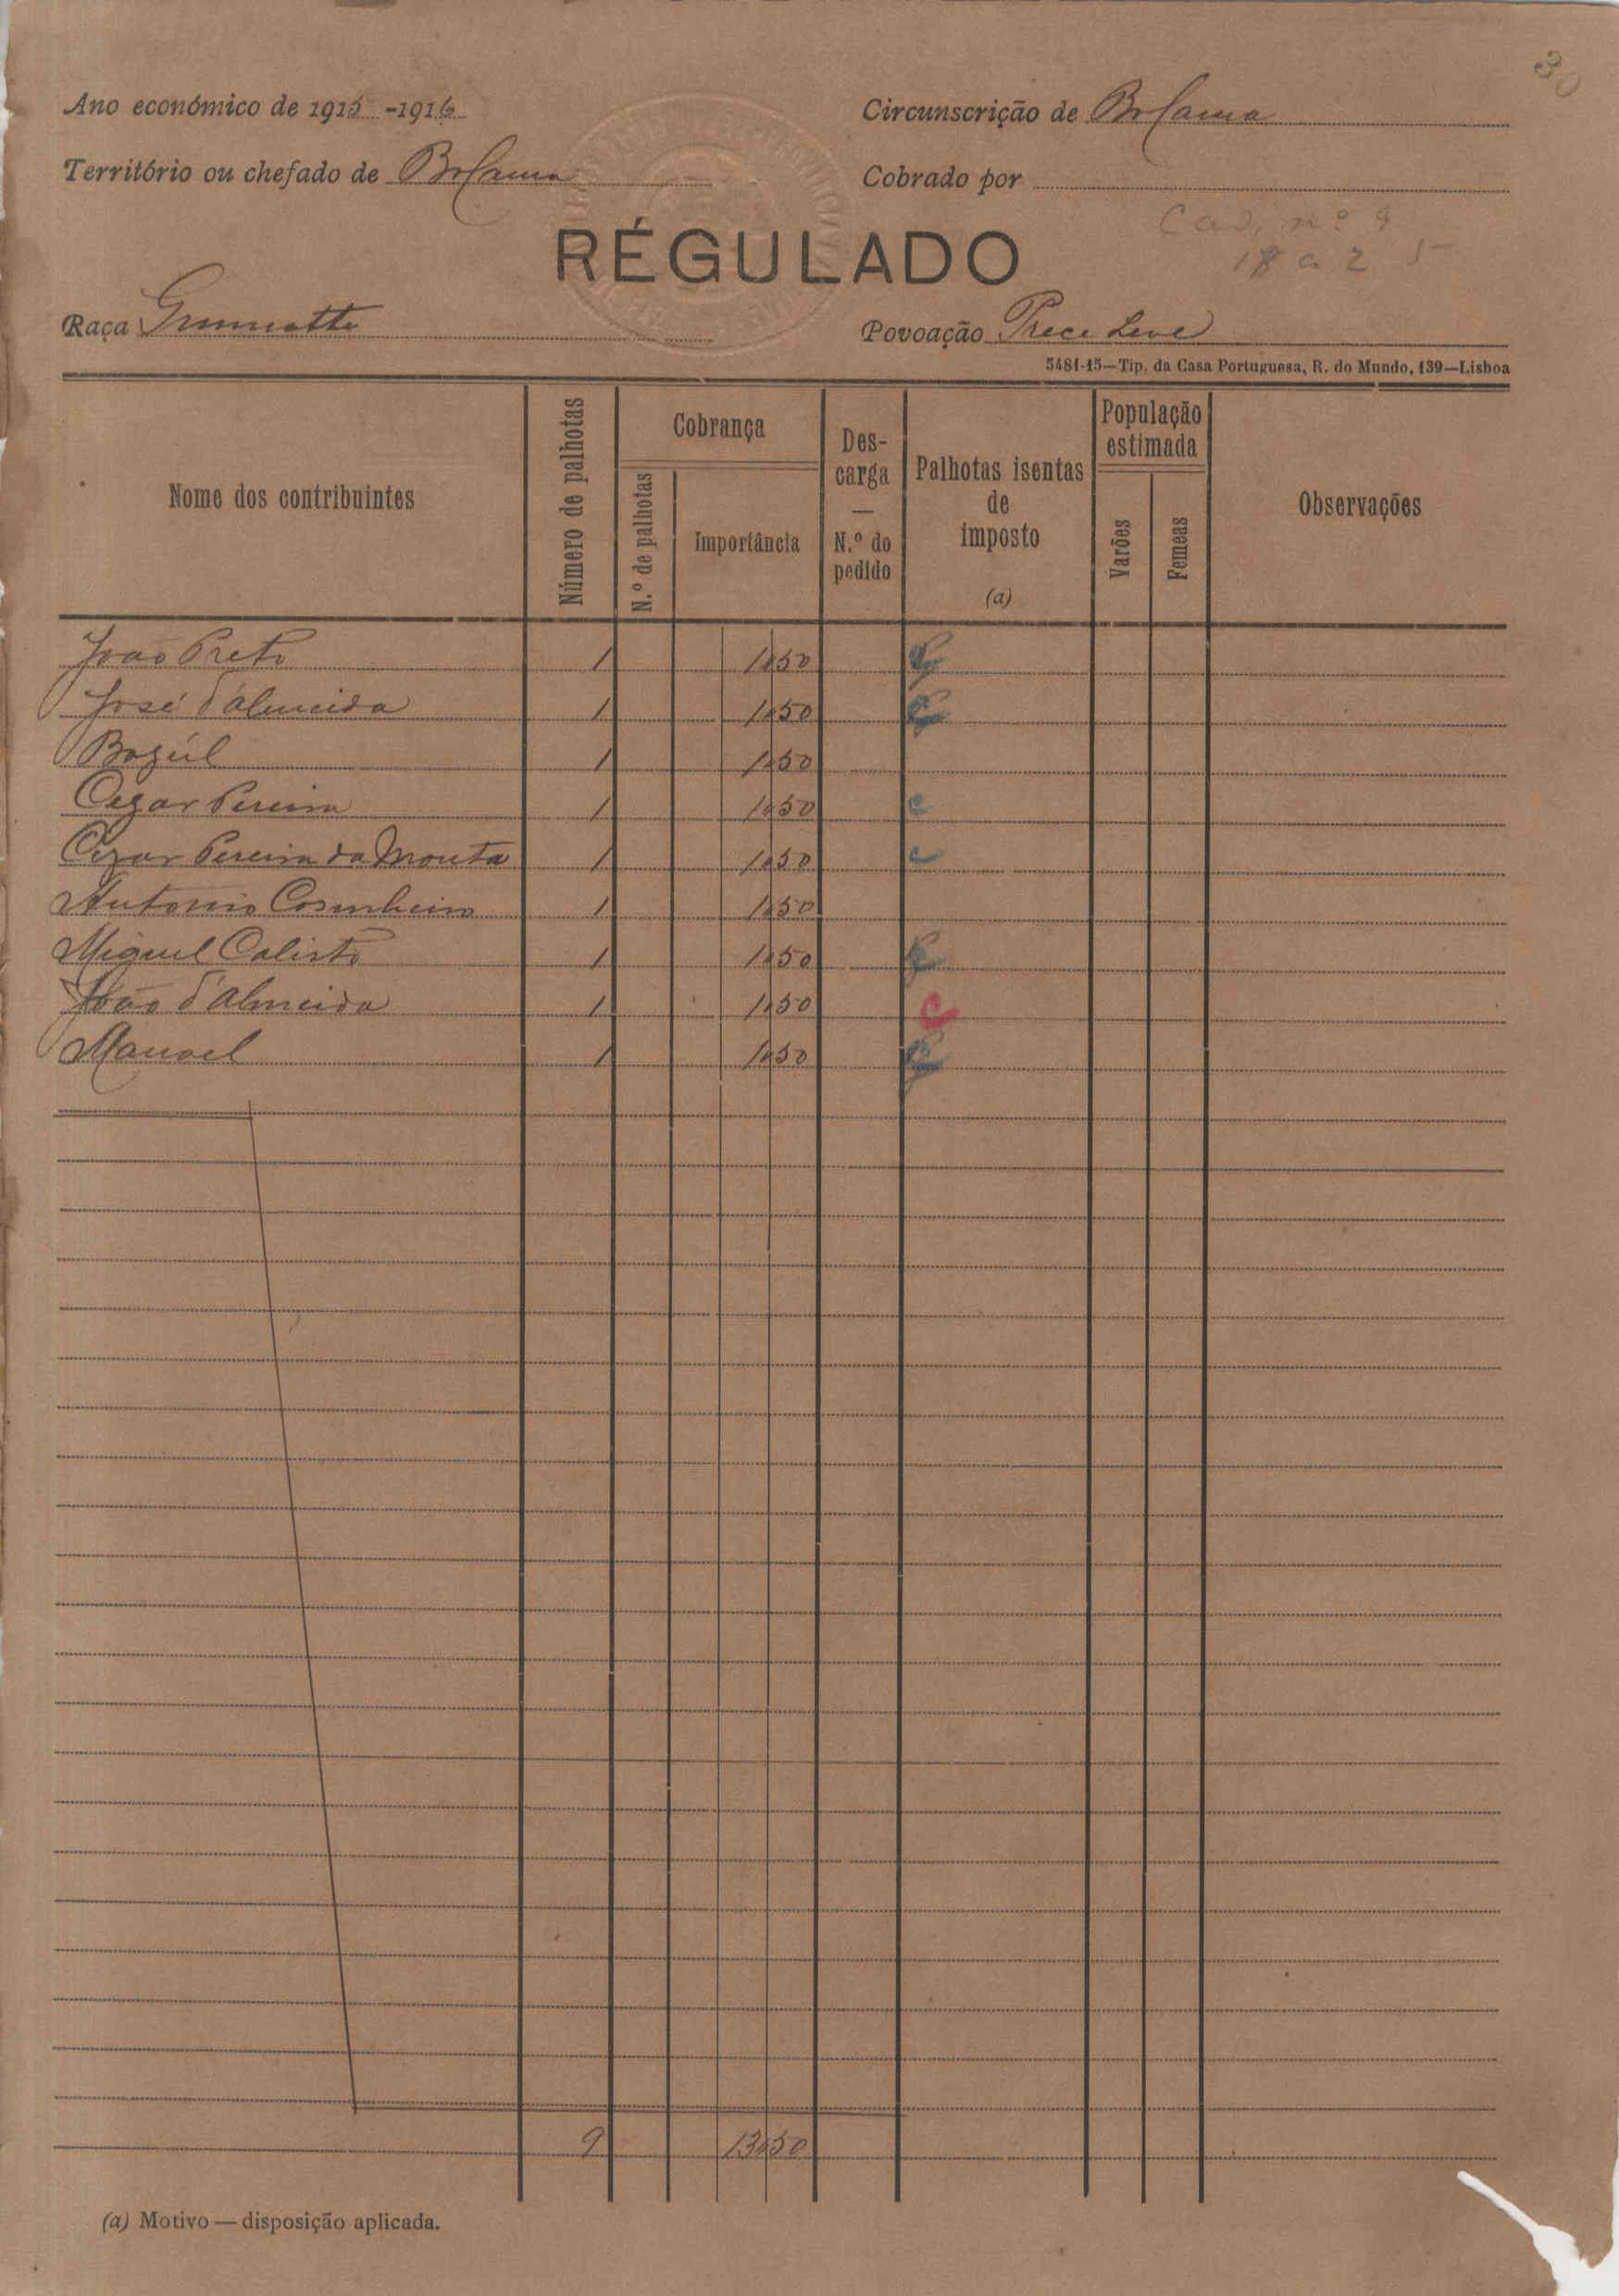 30
Ano económico de 1915-1916
Circunscrição de Bolama
Território ou chefado de Bolama
Cobrado por
Cad. nº 9
18 a 25
RÉGULADO
Raça Grumette
Povoação Prece Leve
5481-15—Tip. da Casa Portuguesa, R. do Mundo, 139—Lisboa
Nome dos contribuintes
Número de palhotas
Cobrança
N.º de palhotas
Importância
Des-
carga
—
N.º do
pedido
Palhotas isentas
de
imposto
(a)
População
estimada
Varões
Femeas
Observações
João Preto 1 1$50
José d'Almeida 1 1$50
1 1$50
Cezar Pereira 1 1$50 c
Cezar Pereira da Mouta 1 1$50 c
Antonio Cosinheiro 1 1$50
Miguel Calisto 1 1$50
João d'Almeida 1 1$50 C
Manoel 1 1$50
9 13$50
(a) Motivo — disposição aplicada.